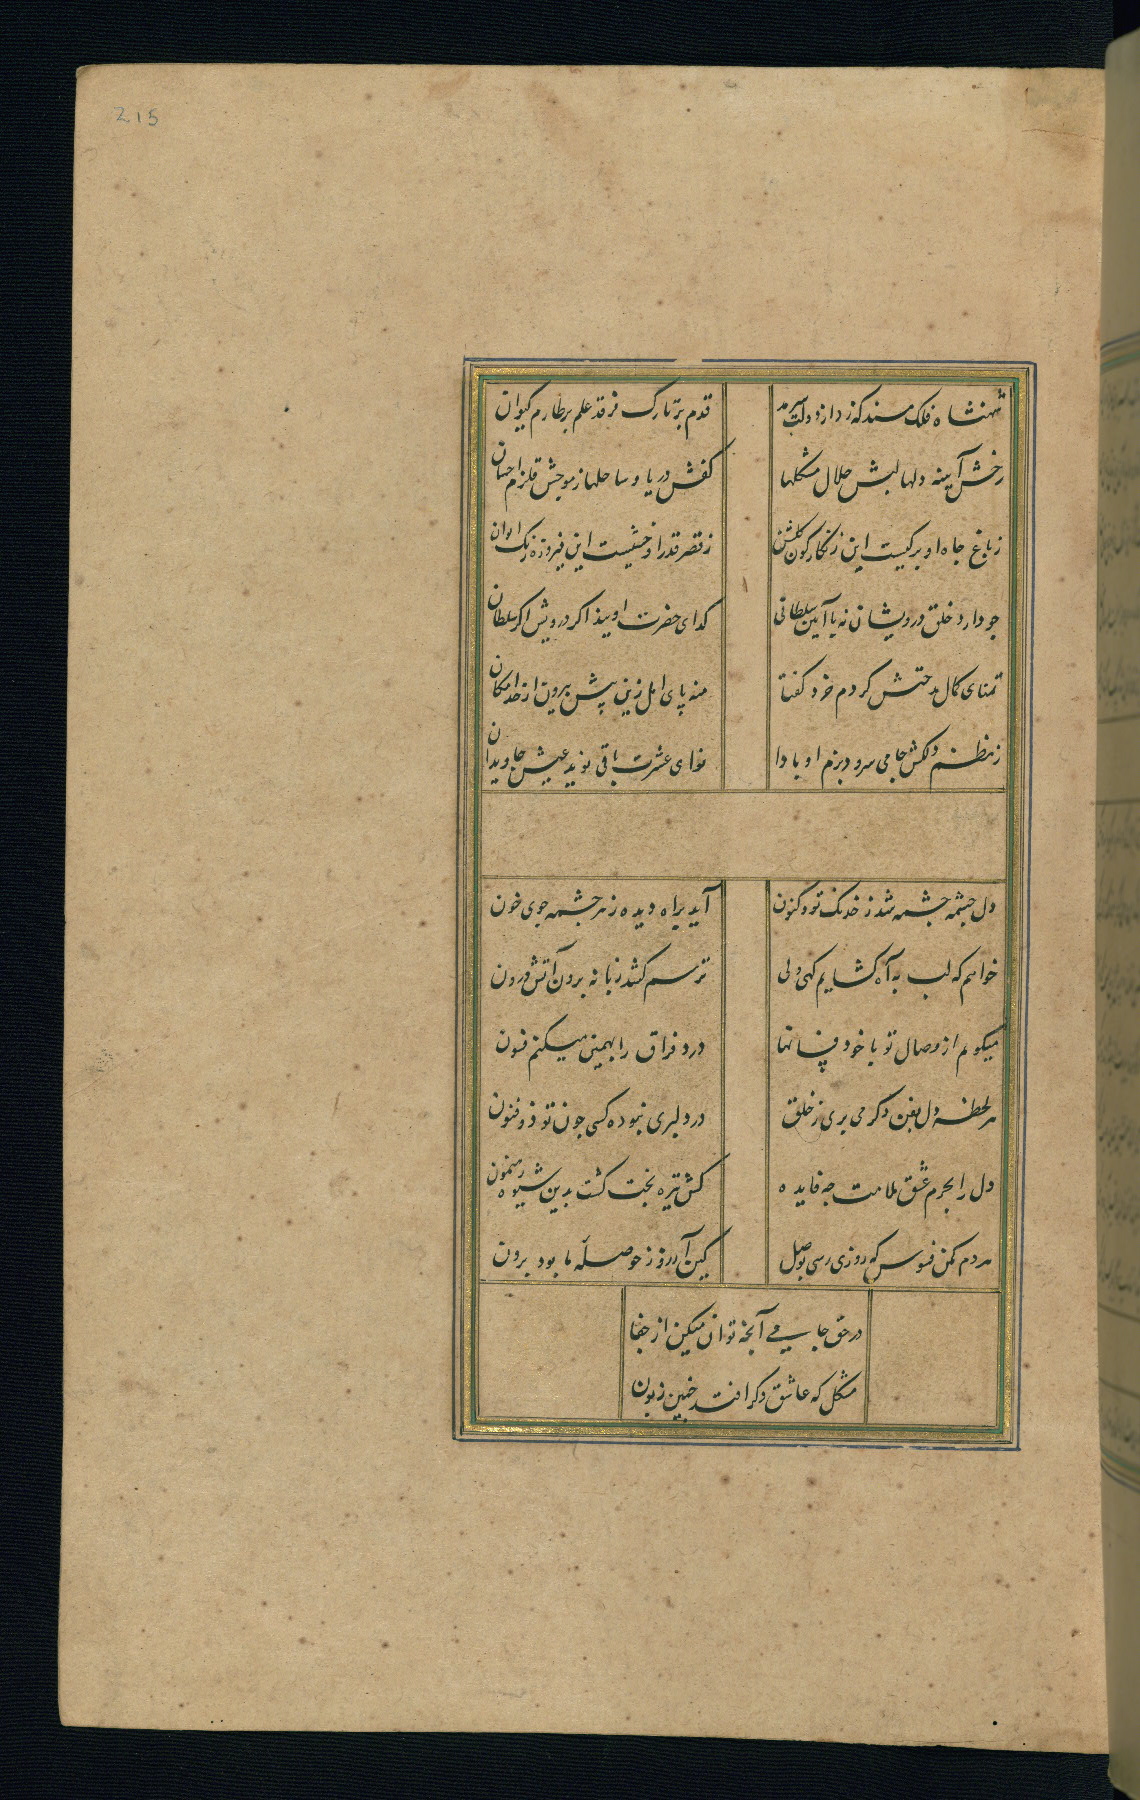 215
شهنشاه فلک مسند که زد از دولت سرمد
قدم بر تارک فرقد علم بر طارم کیوان
رخش آیینه دلها لبش حلال مشکلها
کفش دریا و ساحلها ز موجش قلزم احسان
ز باغ جاه او برکیست این زنکارکون کلشن
ز قصر قدر او خشتیست این فیروزه رنک ایوان
جو دارد خلق درویشان نه با آیین سلطانی
کدای حضرت اویند اکر درویش اکر سلطان
تمنای کمال مدحتش کردم خرد کفتا
منه پای امل زین پیش بیرون از حد امکان
ز نظم دلکش جامی سرود بزم او بادا
نوای عشرت باقی نوید عیش جاویدان
دل جشمه جشمه شد ز خدنک تو و کنون
آید براه دیده ز هر جشمه جوی خون
خواهم که لب به آه کشایم کهی ولی
ترسم کشد زبانه برون آتش درون
میکویم از وصال تو با خود فسانها
درد فراق را بهمین میکنم فسون
هر لحظه دل بفن دکر می بری ز خلق
در دلبری نبوده کسی جون تو ذوفنون
دل را بجرم عشق ملامت جه فایده
کش تیره بخت کشت بدین شیوه رهنمون
هر دم مکن فسوس که روزی رسی بوصل
کین آرزو ز حوصله ما بود برون
در حق جامی آنجه توان میکن از جفا
مشکل که عاشق دکر افتد جنین زبون